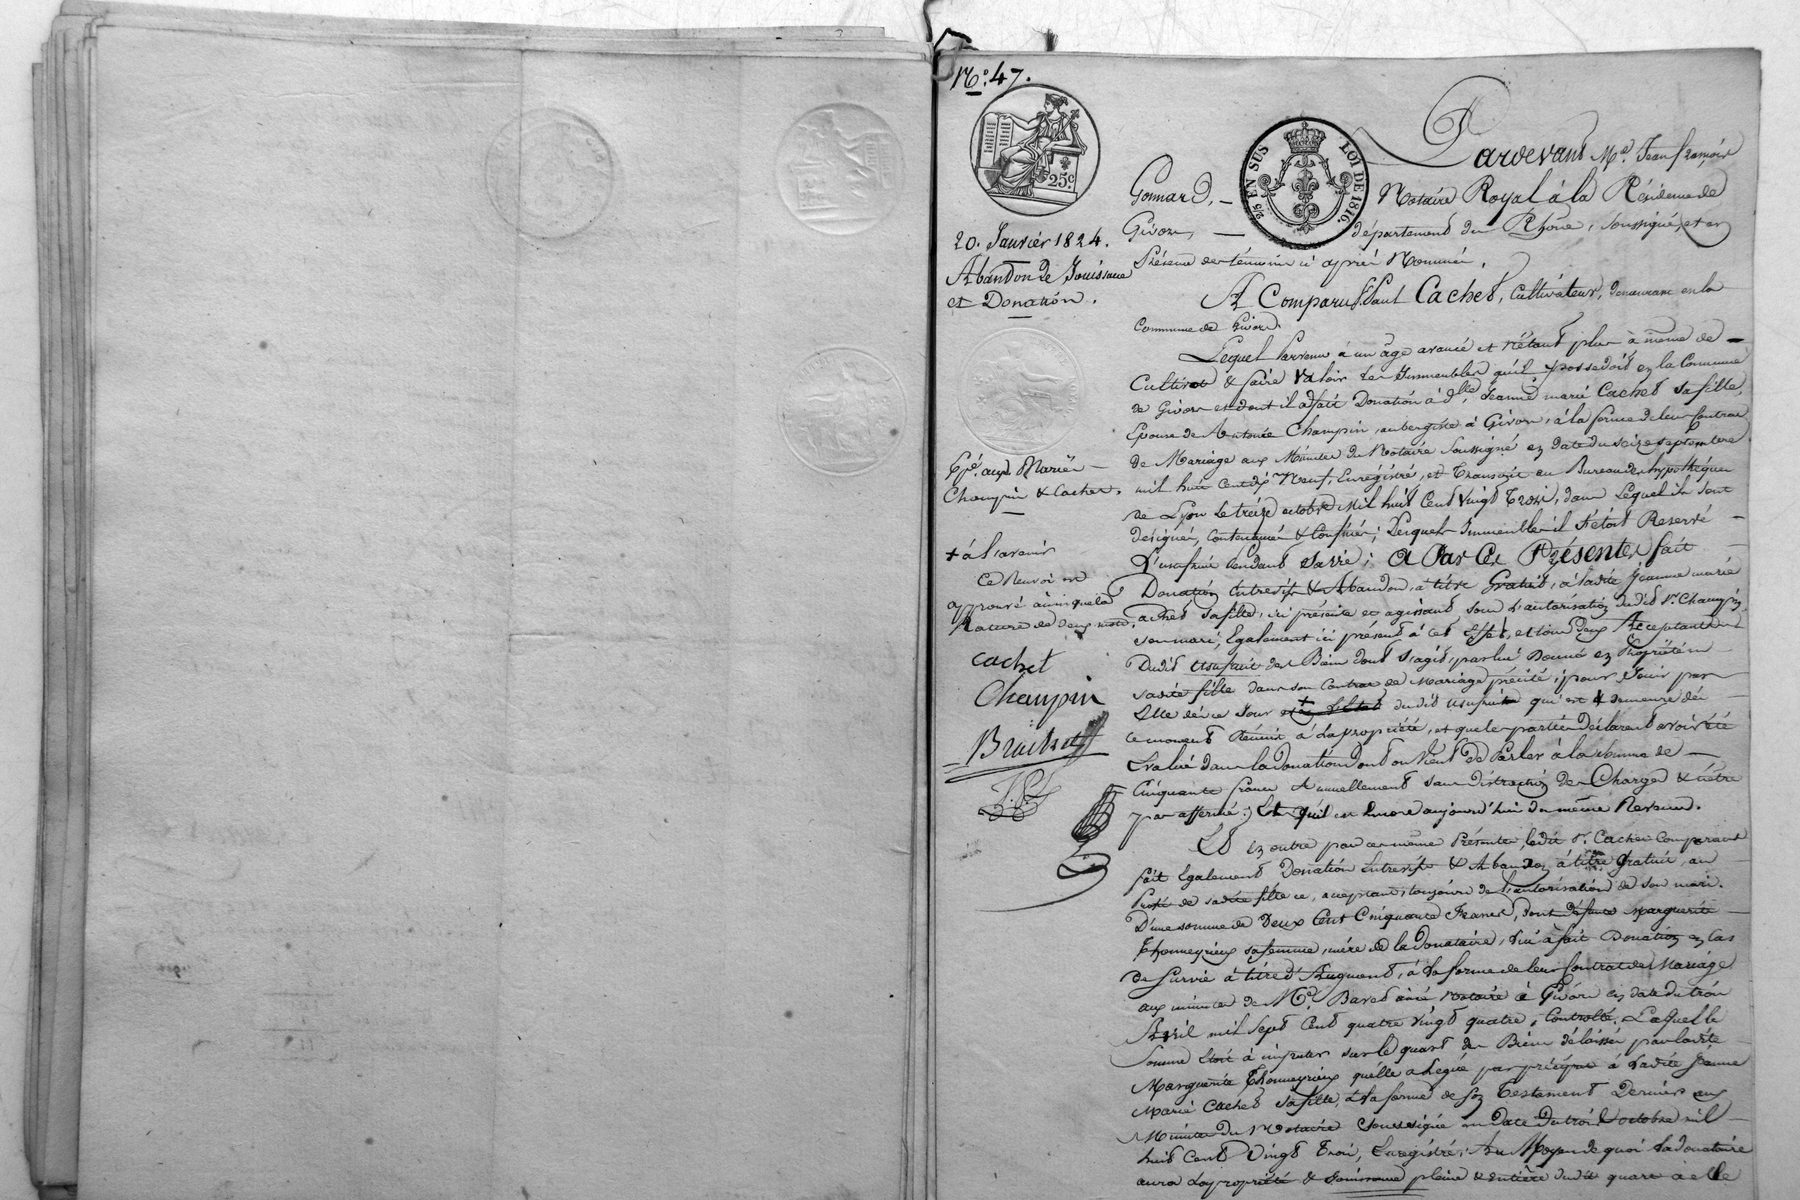 N.o 47.
25 c.
2/5 EN SUS LOI DE 1816.
20. Janvier 1824.
Abandon de Jouissance
et Donation.
Exp.é aux Mariés
Champin & Cachet.
+ à l'avenir
Ce Renvoi est
approuvé ainsi que la
Rature de deux mots.
Cachet
Champin
Brachet
Pardevant M.e Jean françois
Gonnard, Notaire Royal à la Résidence de
Givors, département du Rhône, soussigné, et en
Présence des témoins ci après Nommés.
A Comparu S. Paul Cachet, Cultivateur, demeurant en la
Commune de Givors.
Lequel Parvenu à un âge avancé et n'étant plus à même de
Cultiver & faire Valoir les Immeubles qu'il possedoit en la Commune
de Givors et dont il a fait Donation à d.lle Jeanne marie Cachet sa fille,
Epouse de Antoine Champin, aubergiste à Givors, à la forme de leur Contrat
de Mariage aux Minutes du Notaire Soussigné en date du seize septembre
mil huit cent dix Neuf, Enregistré, et Transcrit au Bureau des hypothèques
de Lyon le treize octobre Mil huit Cent Vingt Trois, dans Lequel ils sont
designés, contenancés & Confinés; Lesquels Immeubles il s'étoit Reservé
L'usufruit Pendant sa vie; a Par Ces Présentes, fait
Donation Entrevifs & Abandon, à titre Gratuit, à ladite Jeanne marie
Cachet sa fille, ici présente et agissant sous L'autorisation dudit S.r Champin
son mari, Egalement ici présent à cet effet, et tous deux Acceptant
Dudit usufruit des Biens dont s'agit, par lui Donnés en Propriété à
sadite fille dans son Contrat de Mariage précité, pour Jouir par
Elle dès ce Jour + dudit usufruit qui est & demeure dès
ce moment Réuni à la propriété, et que les parties déclarent avoir été
Evalué dans la donation dont on Vient de Parler à la somme de
Cinquante francs Annuellement sans distraction des Charges & n'être
pas affermé; Et qu'il est Encore aujourd'hui du même Revenu.
Et en outre par ces mêmes Présentes, ledit S.r Cachet Comparant
fait Egalement Donation Entrevifs & Abandon, à titre Gratuit, au
Profit de sadite fille ce, acceptant, toujours de l'autorisation de son mari.
D'une somme de Deux Cent Cinquante Francs, dont défunte Marguerite
Thomeyrieux sa femme, mère de la donataire, lui a fait Donation en Cas
de survie à titre d'Augment, à la forme de leur Contrat de Mariage
aux minutes de M.e Notaire à Givors en date du trois
Avril mil Sept Cent quatre Vingt quatre, Controllé. Laquelle
Somme étoit à imputer sur le quart des Biens délaissés par ladite
Marguerite Thomeyrieux qu'elle a Légué par préciput à ladite Jeanne
Marie Cachet sa fille, à la forme de son Testament Dernier aux
Minutes du Notaire Soussigné en Date du trois octobre mil
huit Cent Vingt Trois, Enregistré; Au Moyen de quoi la donataire
aura la propriété & Jouissance pleine & entière dudit quart à elle